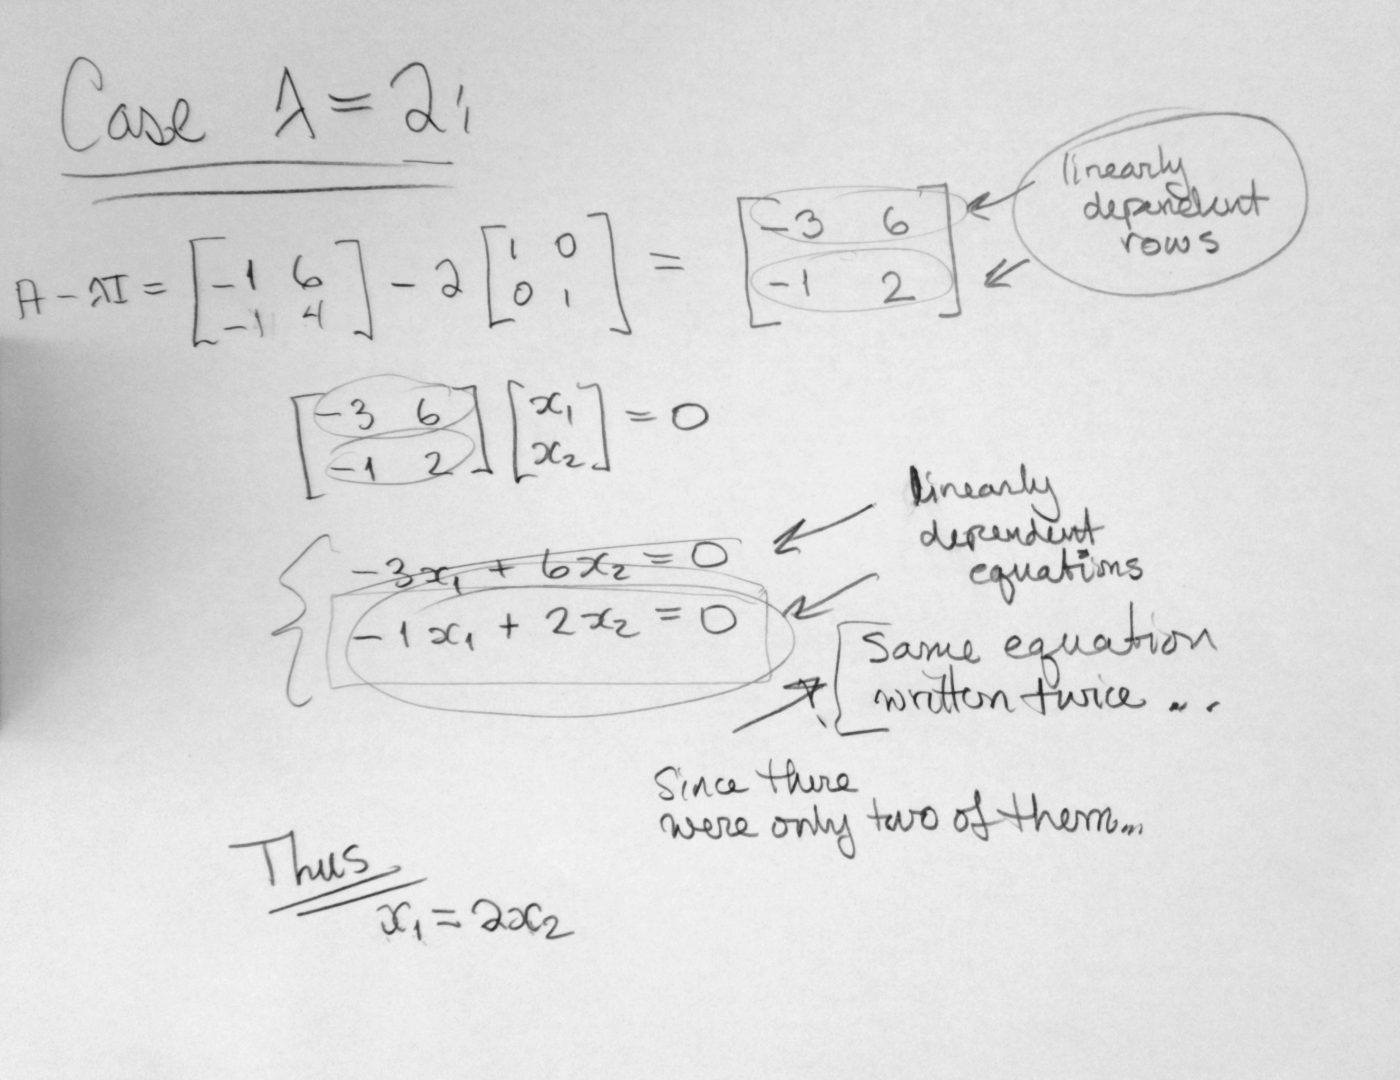 Case λ = 2;
A - λI = [-1 6; -1 4] - 2 [1 0; 0 1] = [-3 6; -1 2]
linearly
dependent
rows
[-3 6; -1 2] [x₁; x₂] = 0
-3x₁ + 6x₂ = 0
-1x₁ + 2x₂ = 0
linearly
dependent
equations
Same equation
written twice...
Since there
were only two of them...
Thus
x₁ = 2x₂